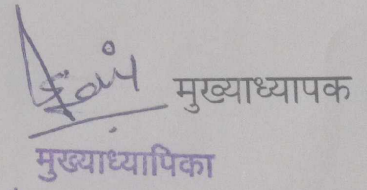 मुख्याध्यापक
मुख्याध्यापिका